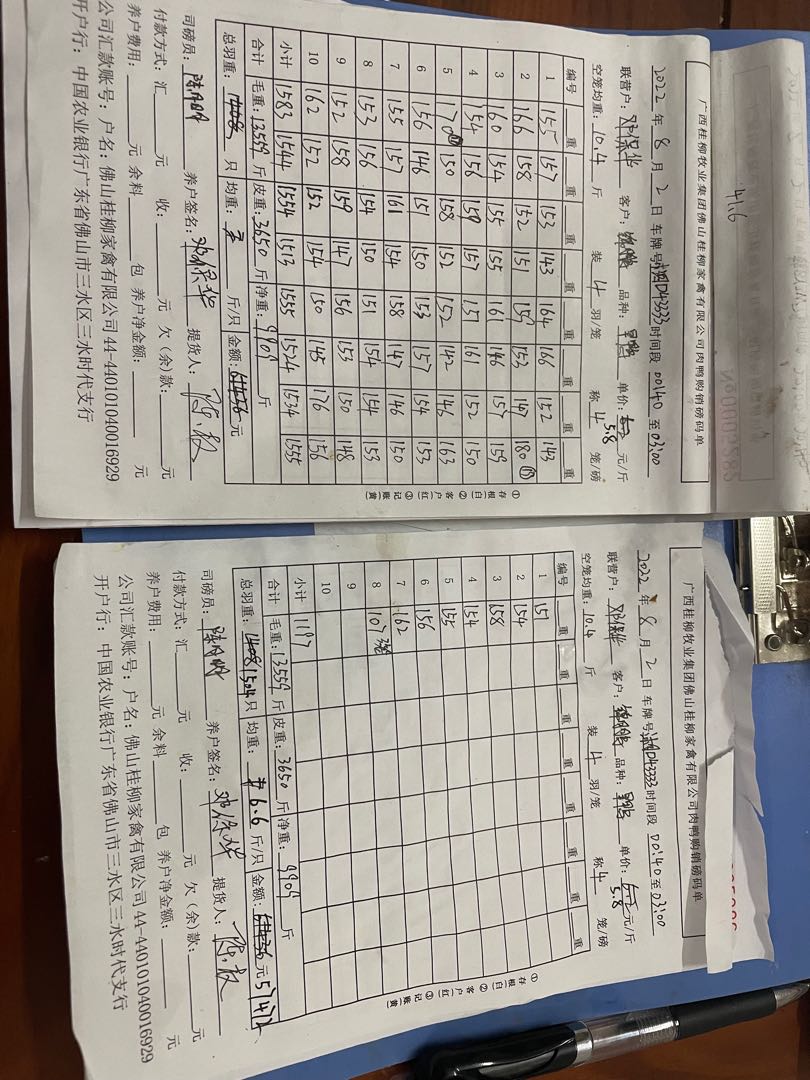 41.6
广西桂柳牧业集团佛山桂柳家禽有限公司肉鸭购销磅码单
2022 年 8 月 2 日 车牌号 D43333 时间段 00:40 至 03:00
联营户: 邓保华 客户: 品种: 单价: 5.8 元/斤
空笼均重: 10.4 斤 装 4 羽/笼 称 4 笼/磅
编号 重 重 重 重 重 重 重 重
1 155 157 153 143 164 166 152 143
2 166 158 152 151 159 153 147 180
3 160 154 155 155 161 146 157 159
4 154 156 159 157 151 161 152 150
5 170 150 158 152 152 142 146 163
6 156 146 151 150 153 157 154 153
7 155 157 161 154 158 147 146 150
8 153 156 154 150 151 154 154 153
9 152 158 159 147 156 153 150 148
10 162 152 152 154 150 145 176 156
小计 1583 1544 1554 1513 1555 1524 1534 1555
合计 毛重: 13559 斤 皮重: 3650 斤 净重: 9909 斤
总羽重: 1408 只 均重: 斤/只 金额: 元
司磅员: 养户签名: 邓保华 提货人:
付款方式: 汇 元 收: 元 欠(余)款: 元
养户费用: 元 余料 包 养户净金额: 元
公司汇款账号: 户名: 佛山桂柳家禽有限公司 44-440101040016929
开户行: 中国农业银行广东省佛山市三水区三水时代支行
①存根(白) ②客户(红) ③记账(黄)
广西桂柳牧业集团佛山桂柳家禽有限公司肉鸭购销磅码单
2022 年 8 月 2 日 车牌号 D43333 时间段 00:40 至 03:00
联营户: 邓保华 客户: 品种: 单价: 5.8 元/斤
空笼均重: 10.4 斤 装 4 羽/笼 称 4 笼/磅
编号 重 重 重 重 重 重 重 重
1 151
2 154
3 158
4 154
5 155
6 156
7 162
8 107
9
10
小计 1197
合计 毛重: 13559 斤 皮重: 3650 斤 净重: 9909 斤
总羽重: 1408 1504 只 均重: 6.6 斤/只 金额: 元
司磅员: 养户签名: 邓保华 提货人:
付款方式: 汇 元 收: 元 欠(余)款: 元
养户费用: 元 余料 包 养户净金额: 元
公司汇款账号: 户名: 佛山桂柳家禽有限公司 44-440101040016929
开户行: 中国农业银行广东省佛山市三水区三水时代支行
①存根(白) ②客户(红) ③记账(黄)